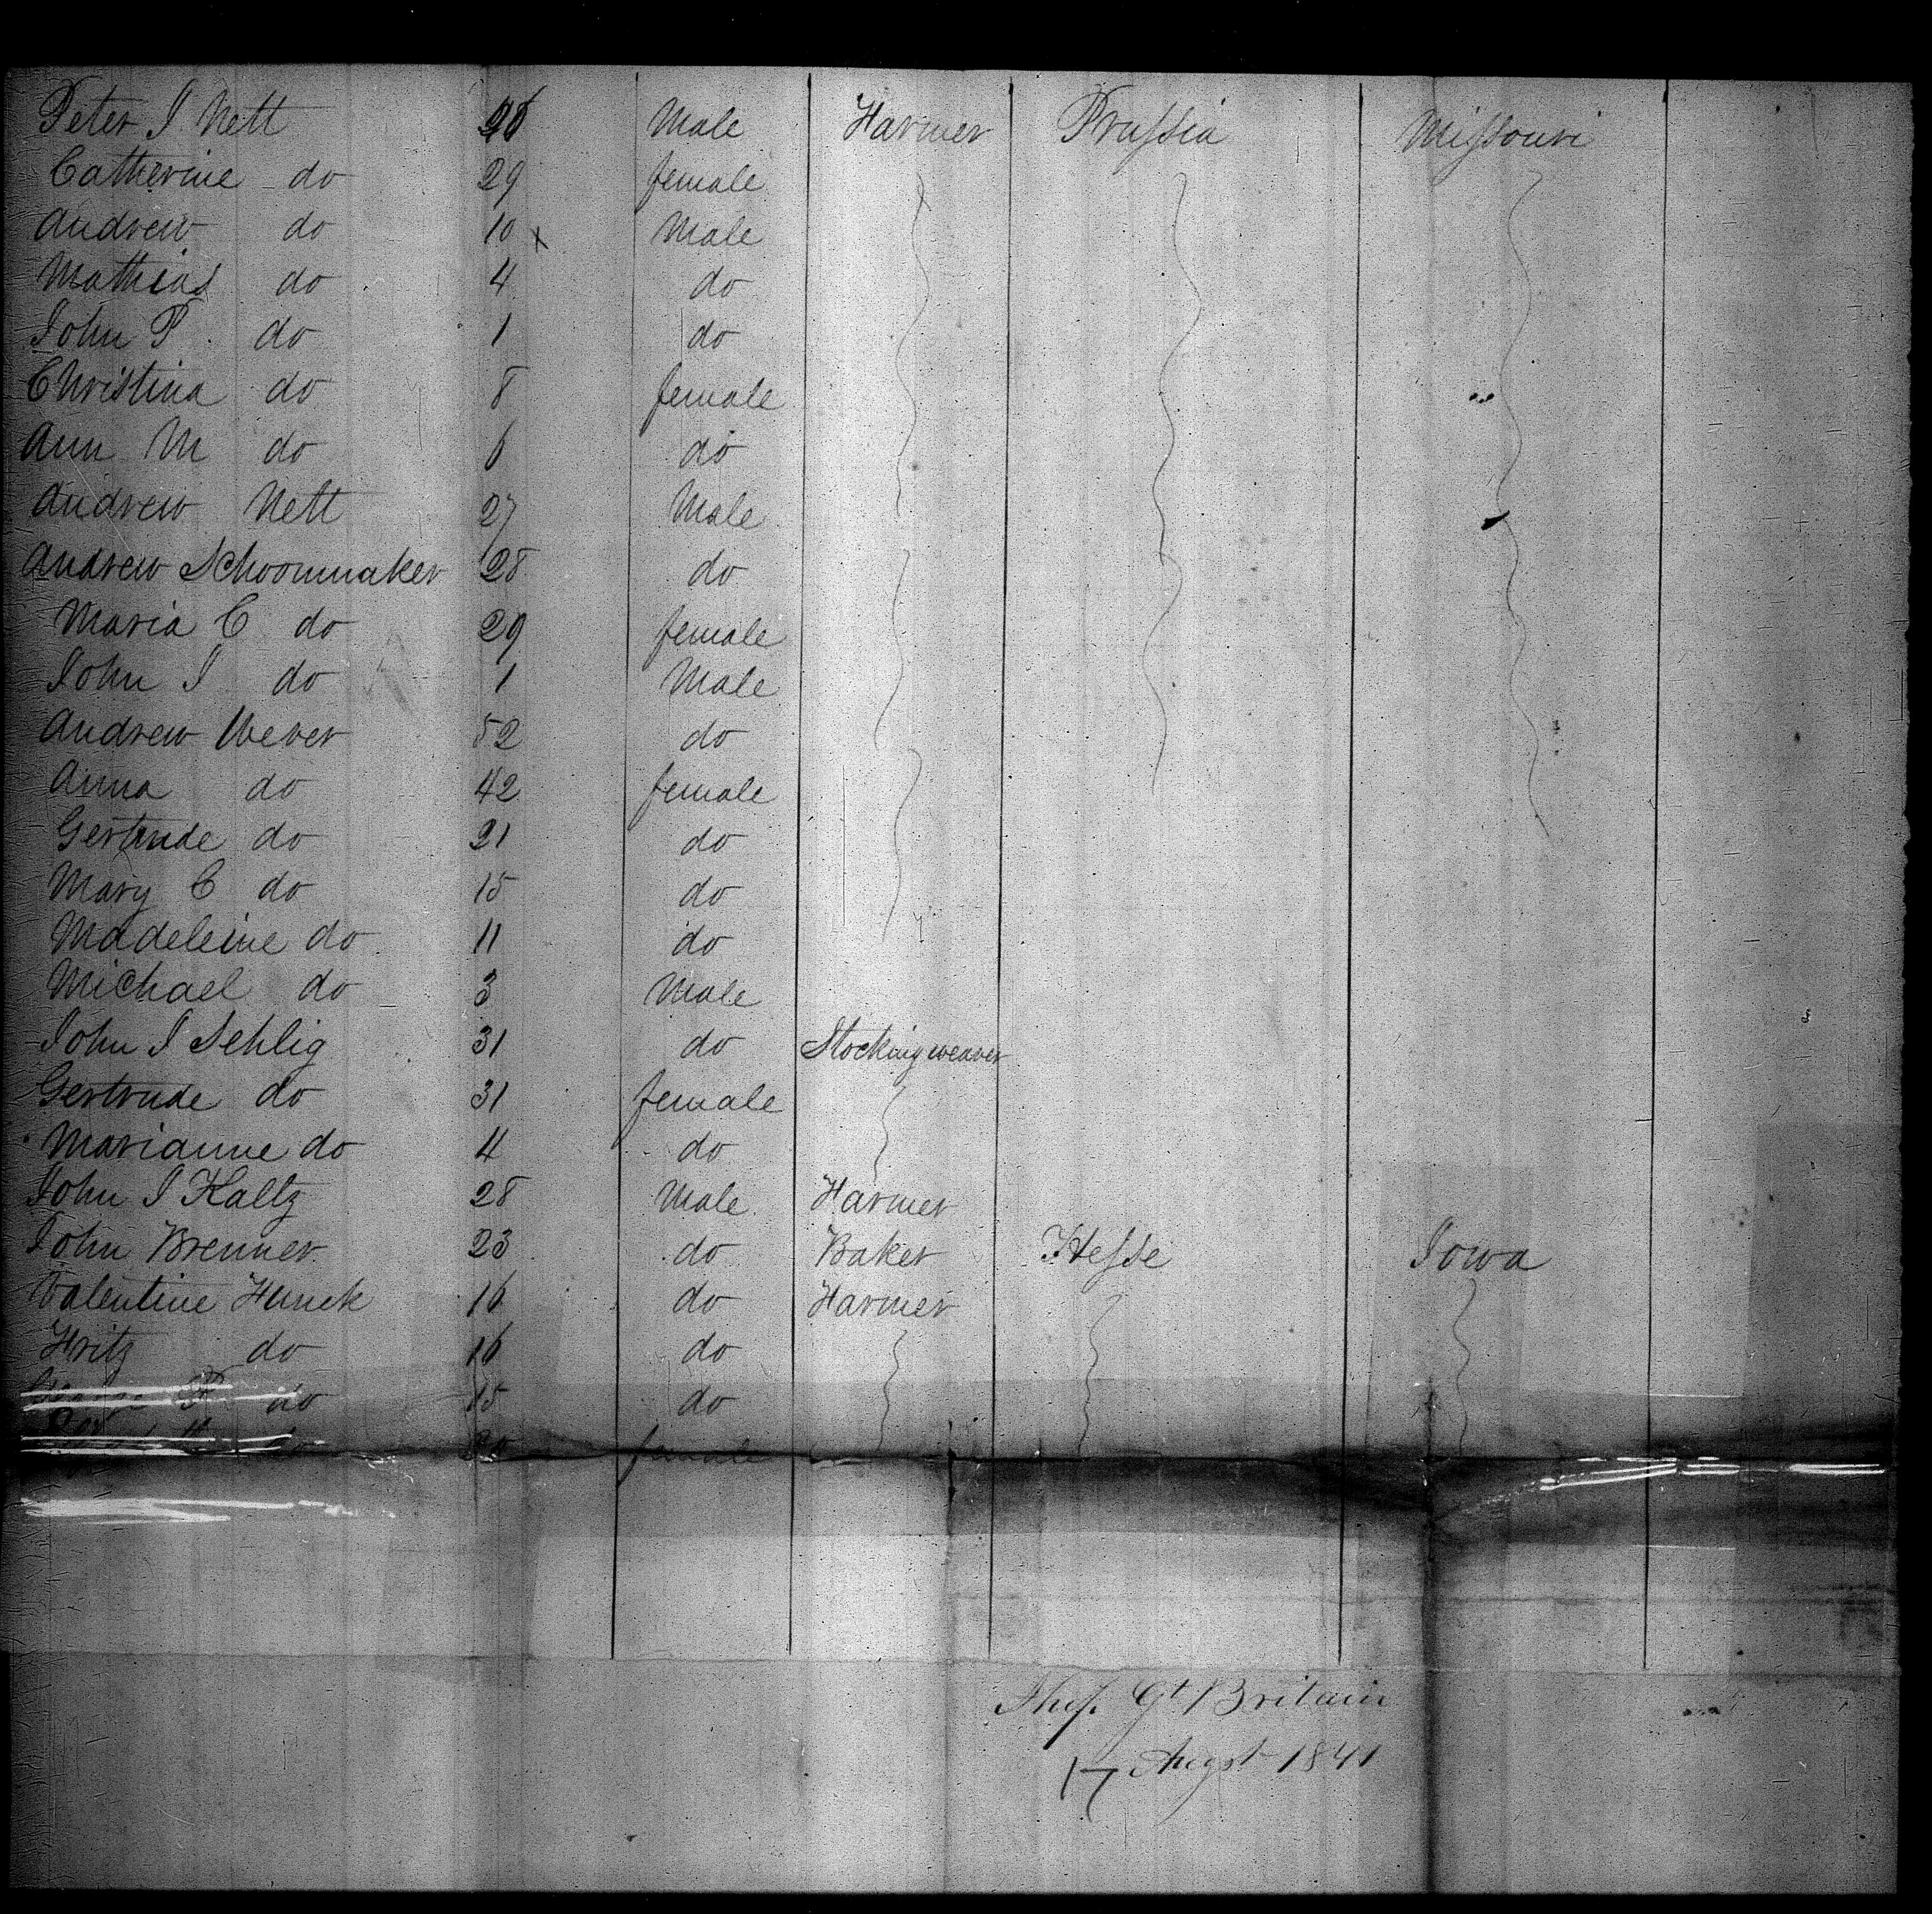 Peter J Nett Male Farmer Prussia Missouri
Catherine do 29 female
Andrew do 10 Male
Mathias do 4 do
John P. do 1 do
Christina do 8 female
Ann M do 6 do
Andrew Nett 27 Male
Andrew Schoomaker 28 do
Maria C do 29 female
John J do 1 Male
Andrew Weber 52 do
Anna do 42 female
Gertrude do 21 do
Mary C do 15 do
Madeleine do 11 do
Michael do 3 Male
John J Sehlig 31 do Stocking weaver
Gertrude do 31 female
Marianne do 4 do
John J Kaltz 28 Male Farmer
John Brenner 23 do Baker Hesse Iowa
Valentine Hunck 16 do Farmer
Fritz do 16 do
do 15 do
female
Ship Gt Britain
17 Augst 1841